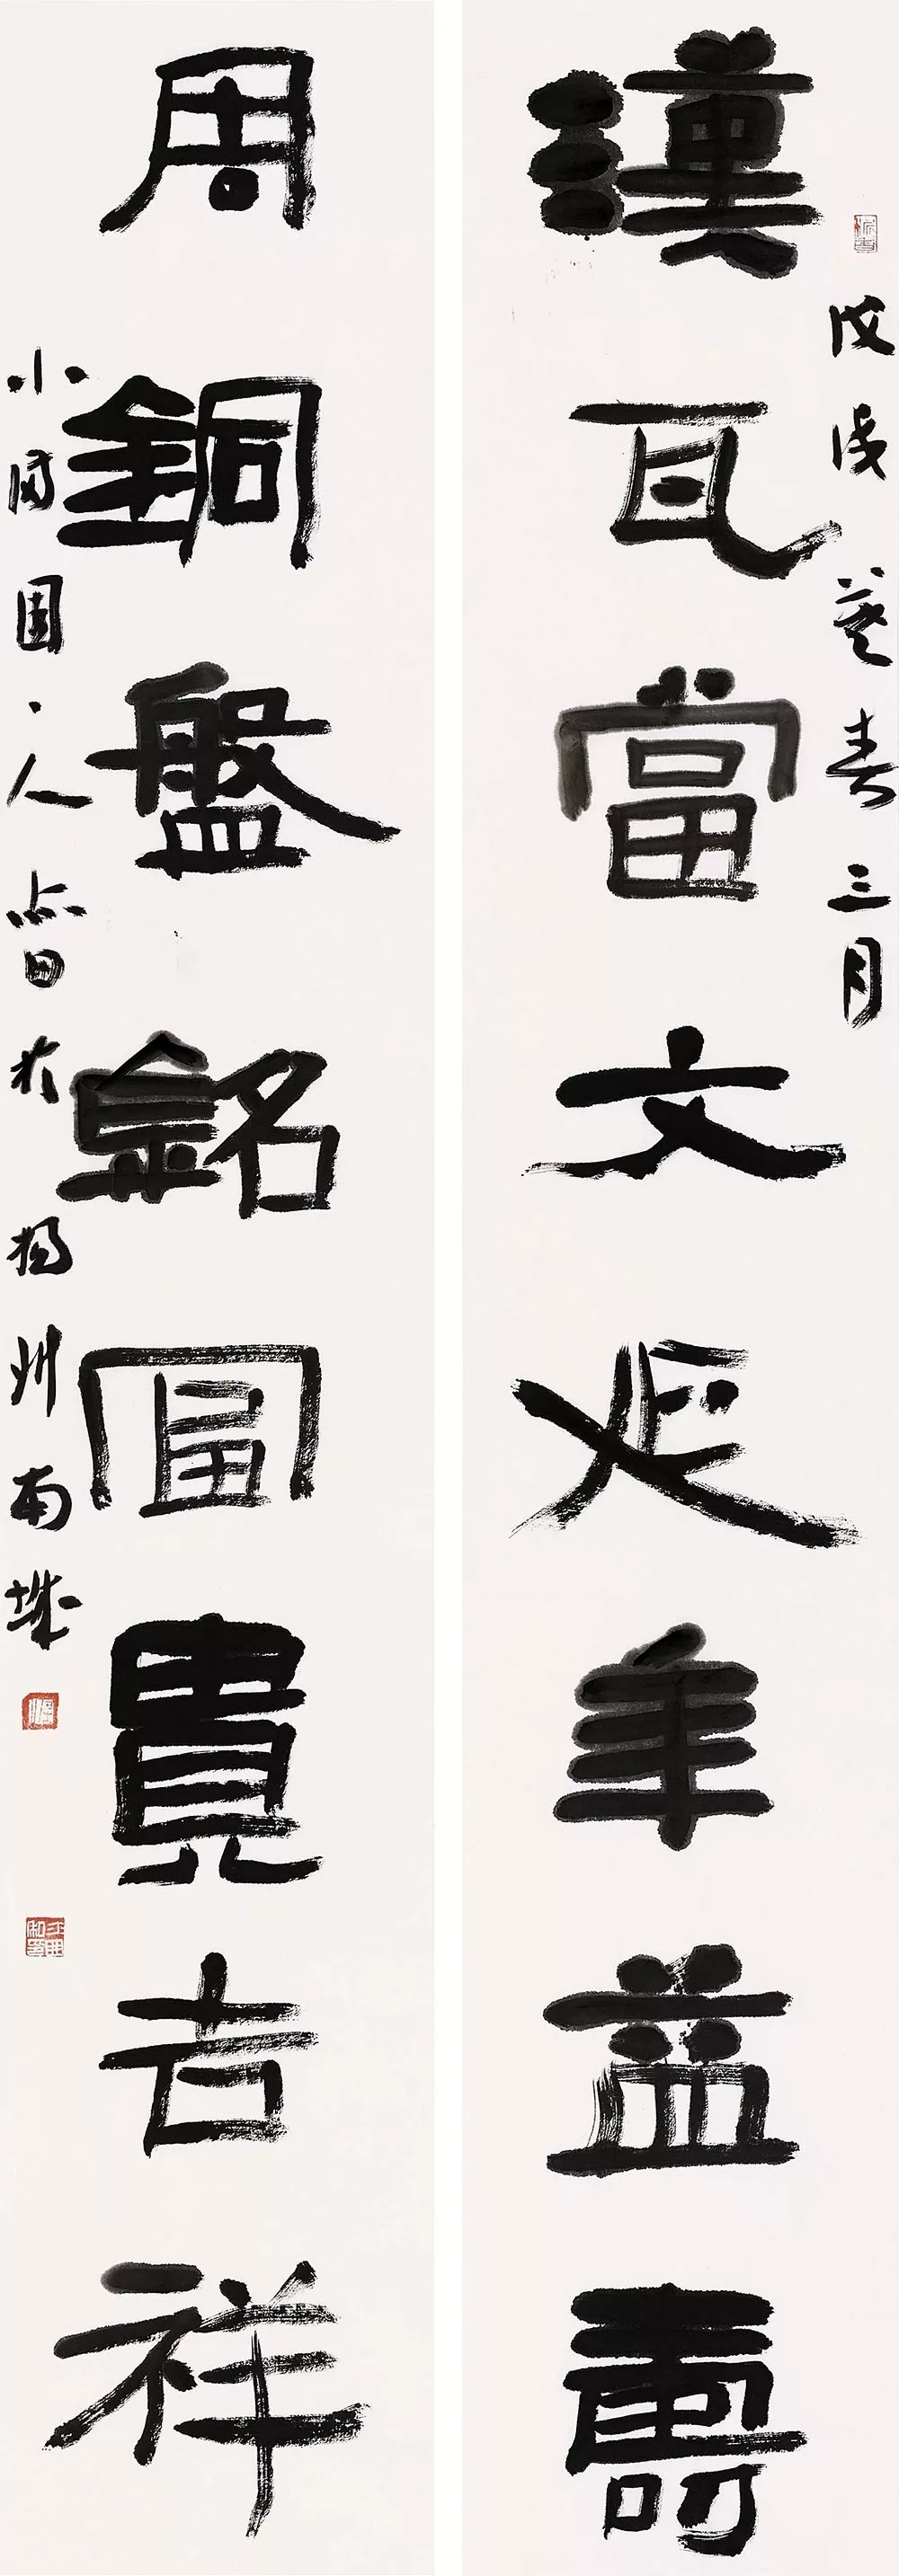 戊戌暮春三月
漢瓦當文延年益壽
周銅盤銘富貴吉祥
小園人旹於揚州南城